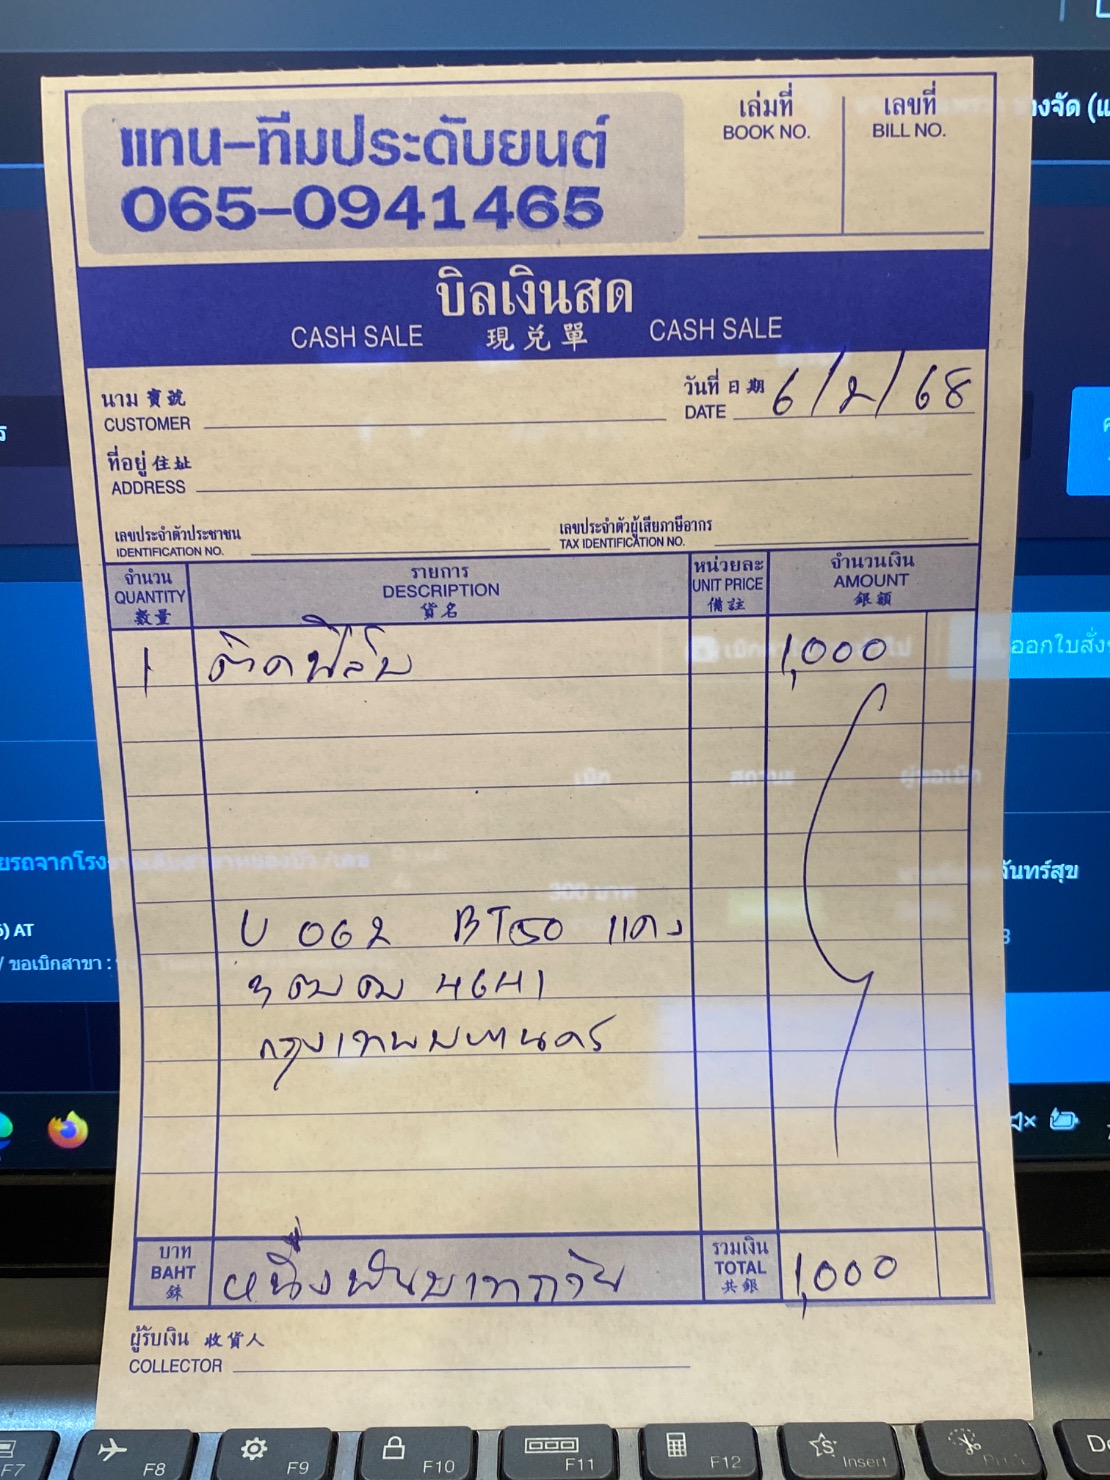 แทน-ทีมประดับยนต์
065-0941465
เล่มที่
BOOK NO.
เลขที่
BILL NO.
บิลเงินสด
CASH SALE 現兑單 CASH SALE
นาม 寶號
CUSTOMER
วันที่ 日期
DATE 6/2/68
ที่อยู่ 住址
ADDRESS
เลขประจำตัวประชาชน
IDENTIFICATION NO.
เลขประจำตัวผู้เสียภาษีอากร
TAX IDENTIFICATION NO.
จำนวน
QUANTITY
數量
รายการ
DESCRIPTION
貨名
หน่วยละ
UNIT PRICE
備註
จำนวนเงิน
AMOUNT
銀額
1 ติดฟิล์ม 1,000
U 062 BT50 แดง
3 ฒฒ 4641
กรุงเทพมหานคร
บาท
BAHT
銖
หนึ่งพันบาทถ้วน
รวมเงิน
TOTAL
共銀
1,000
ผู้รับเงิน 收貨人
COLLECTOR
ออกใบสั่ง
จันทร์สุข
) AT
/ ขอเบิกสาขา :
F7
F8
F9
F10
F11
F12
Insert